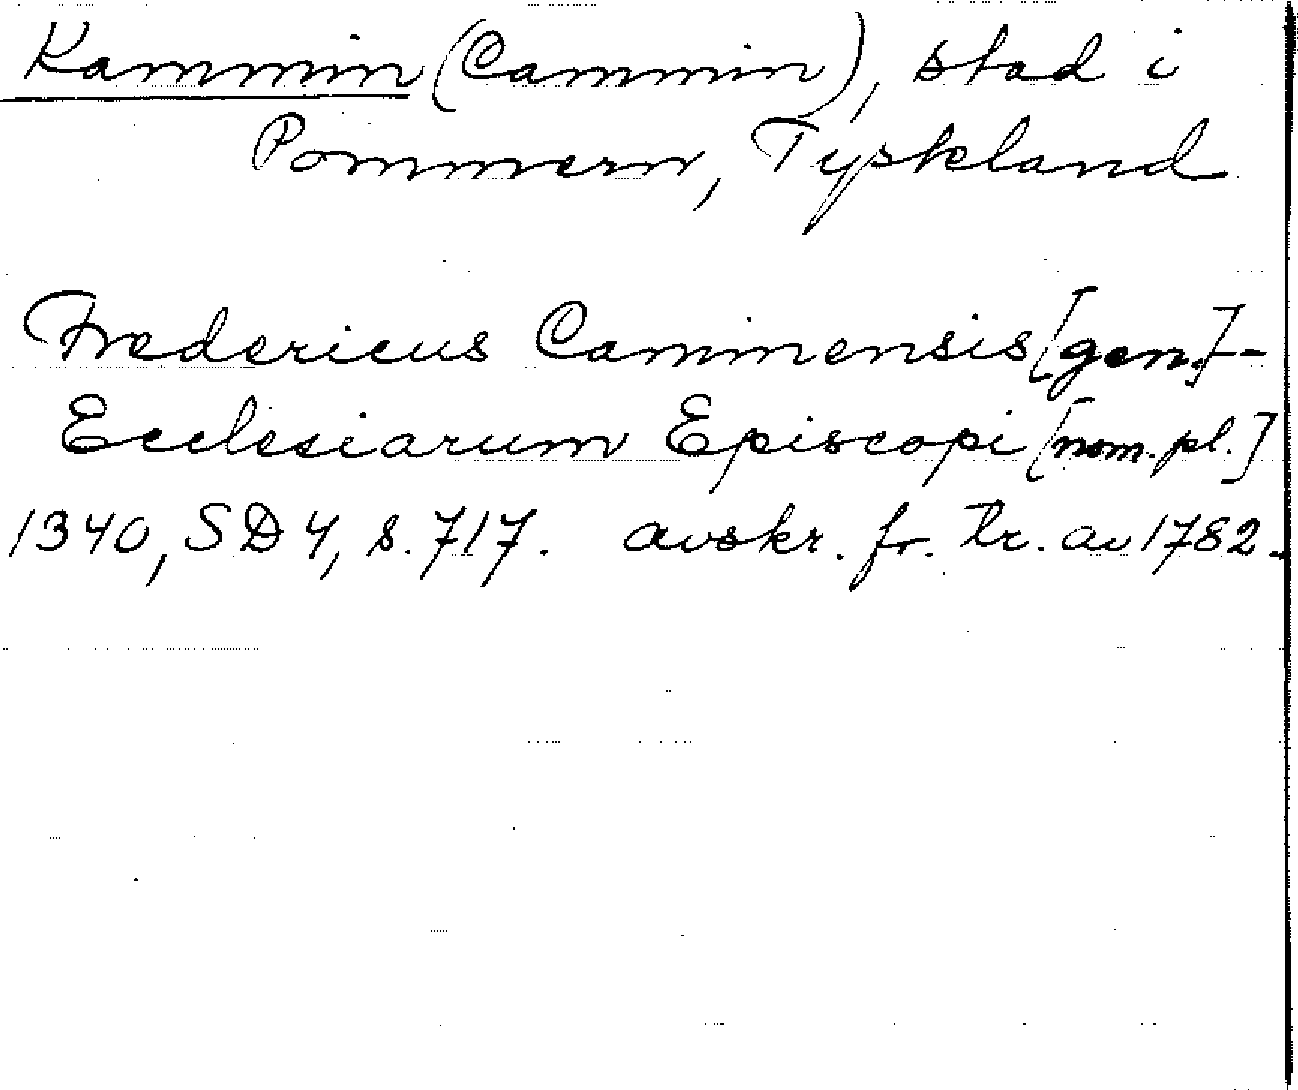 Kammin (Cammin), stad i
Pommern, Tyskland
Fredericus Caminensis [gen.] -
Ecclesiarum Episcopi [nom. pl.]
1340, SD 4, s. 717. avskr. fr. tr. av 1782.